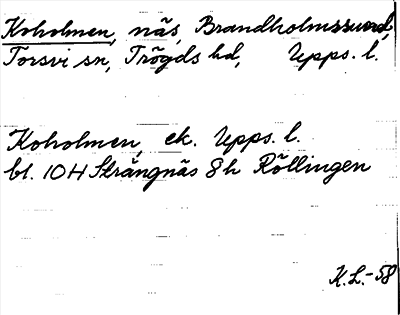 Koholmen, näs, Brandholmssund,
Torsvi sn, Trögds hd, Upps. l.
Koholmen, ek. Upps. l.
bl. 10H Strängnäs 8h Röllingen
K.L.-58